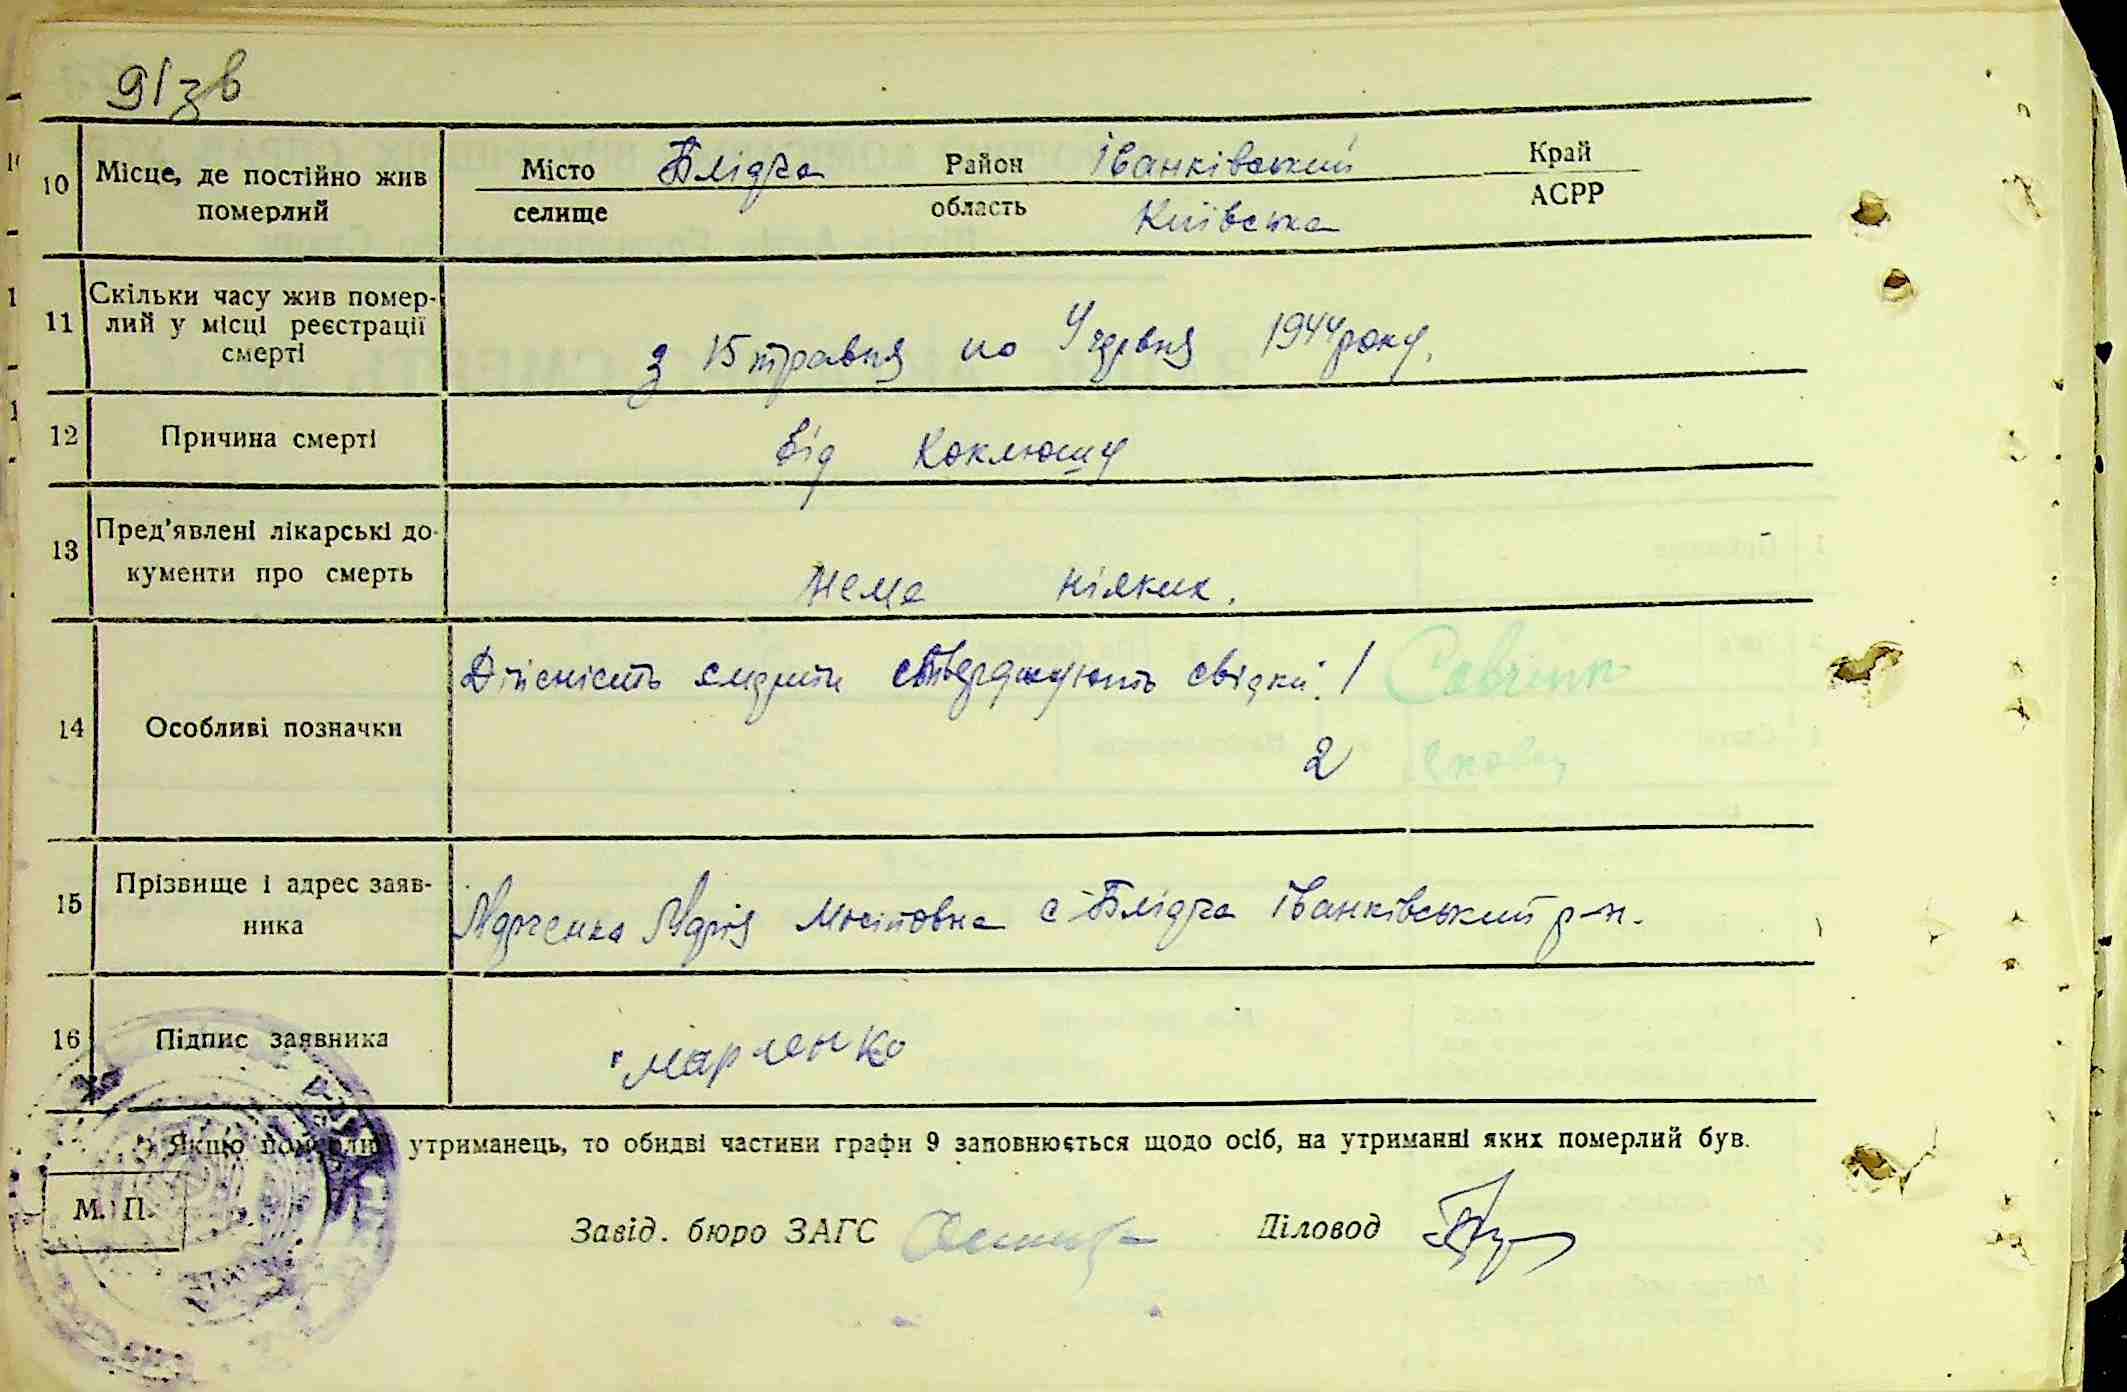 91зв
10 Місце, де постійно жив померлий
Місто Блідча Район Іванківський Край
селище область Київська АСРР
11 Скільки часу жив помер-
лий у місці реєстрації
смерті
з 15 травня по 4 червня 1944 року.
12 Причина смерті від коклюшу
13 Пред'явлені лікарські до-
кументи про смерть
нема ніяких.
14 Особливі позначки
Дійсність смерти стверджують свідки: 1
2
15 Прізвище і адрес заяв-
ника
Марченко Марія Мосіповна с. Блідча Іванківський р-н.
16 Підпис заявника Марченко
*) Якщо померлий утриманець, то обидві частини графи 9 заповнюється щодо осіб, на утриманні яких померлий був.
М. П.
Завід. бюро ЗАГС Діловод